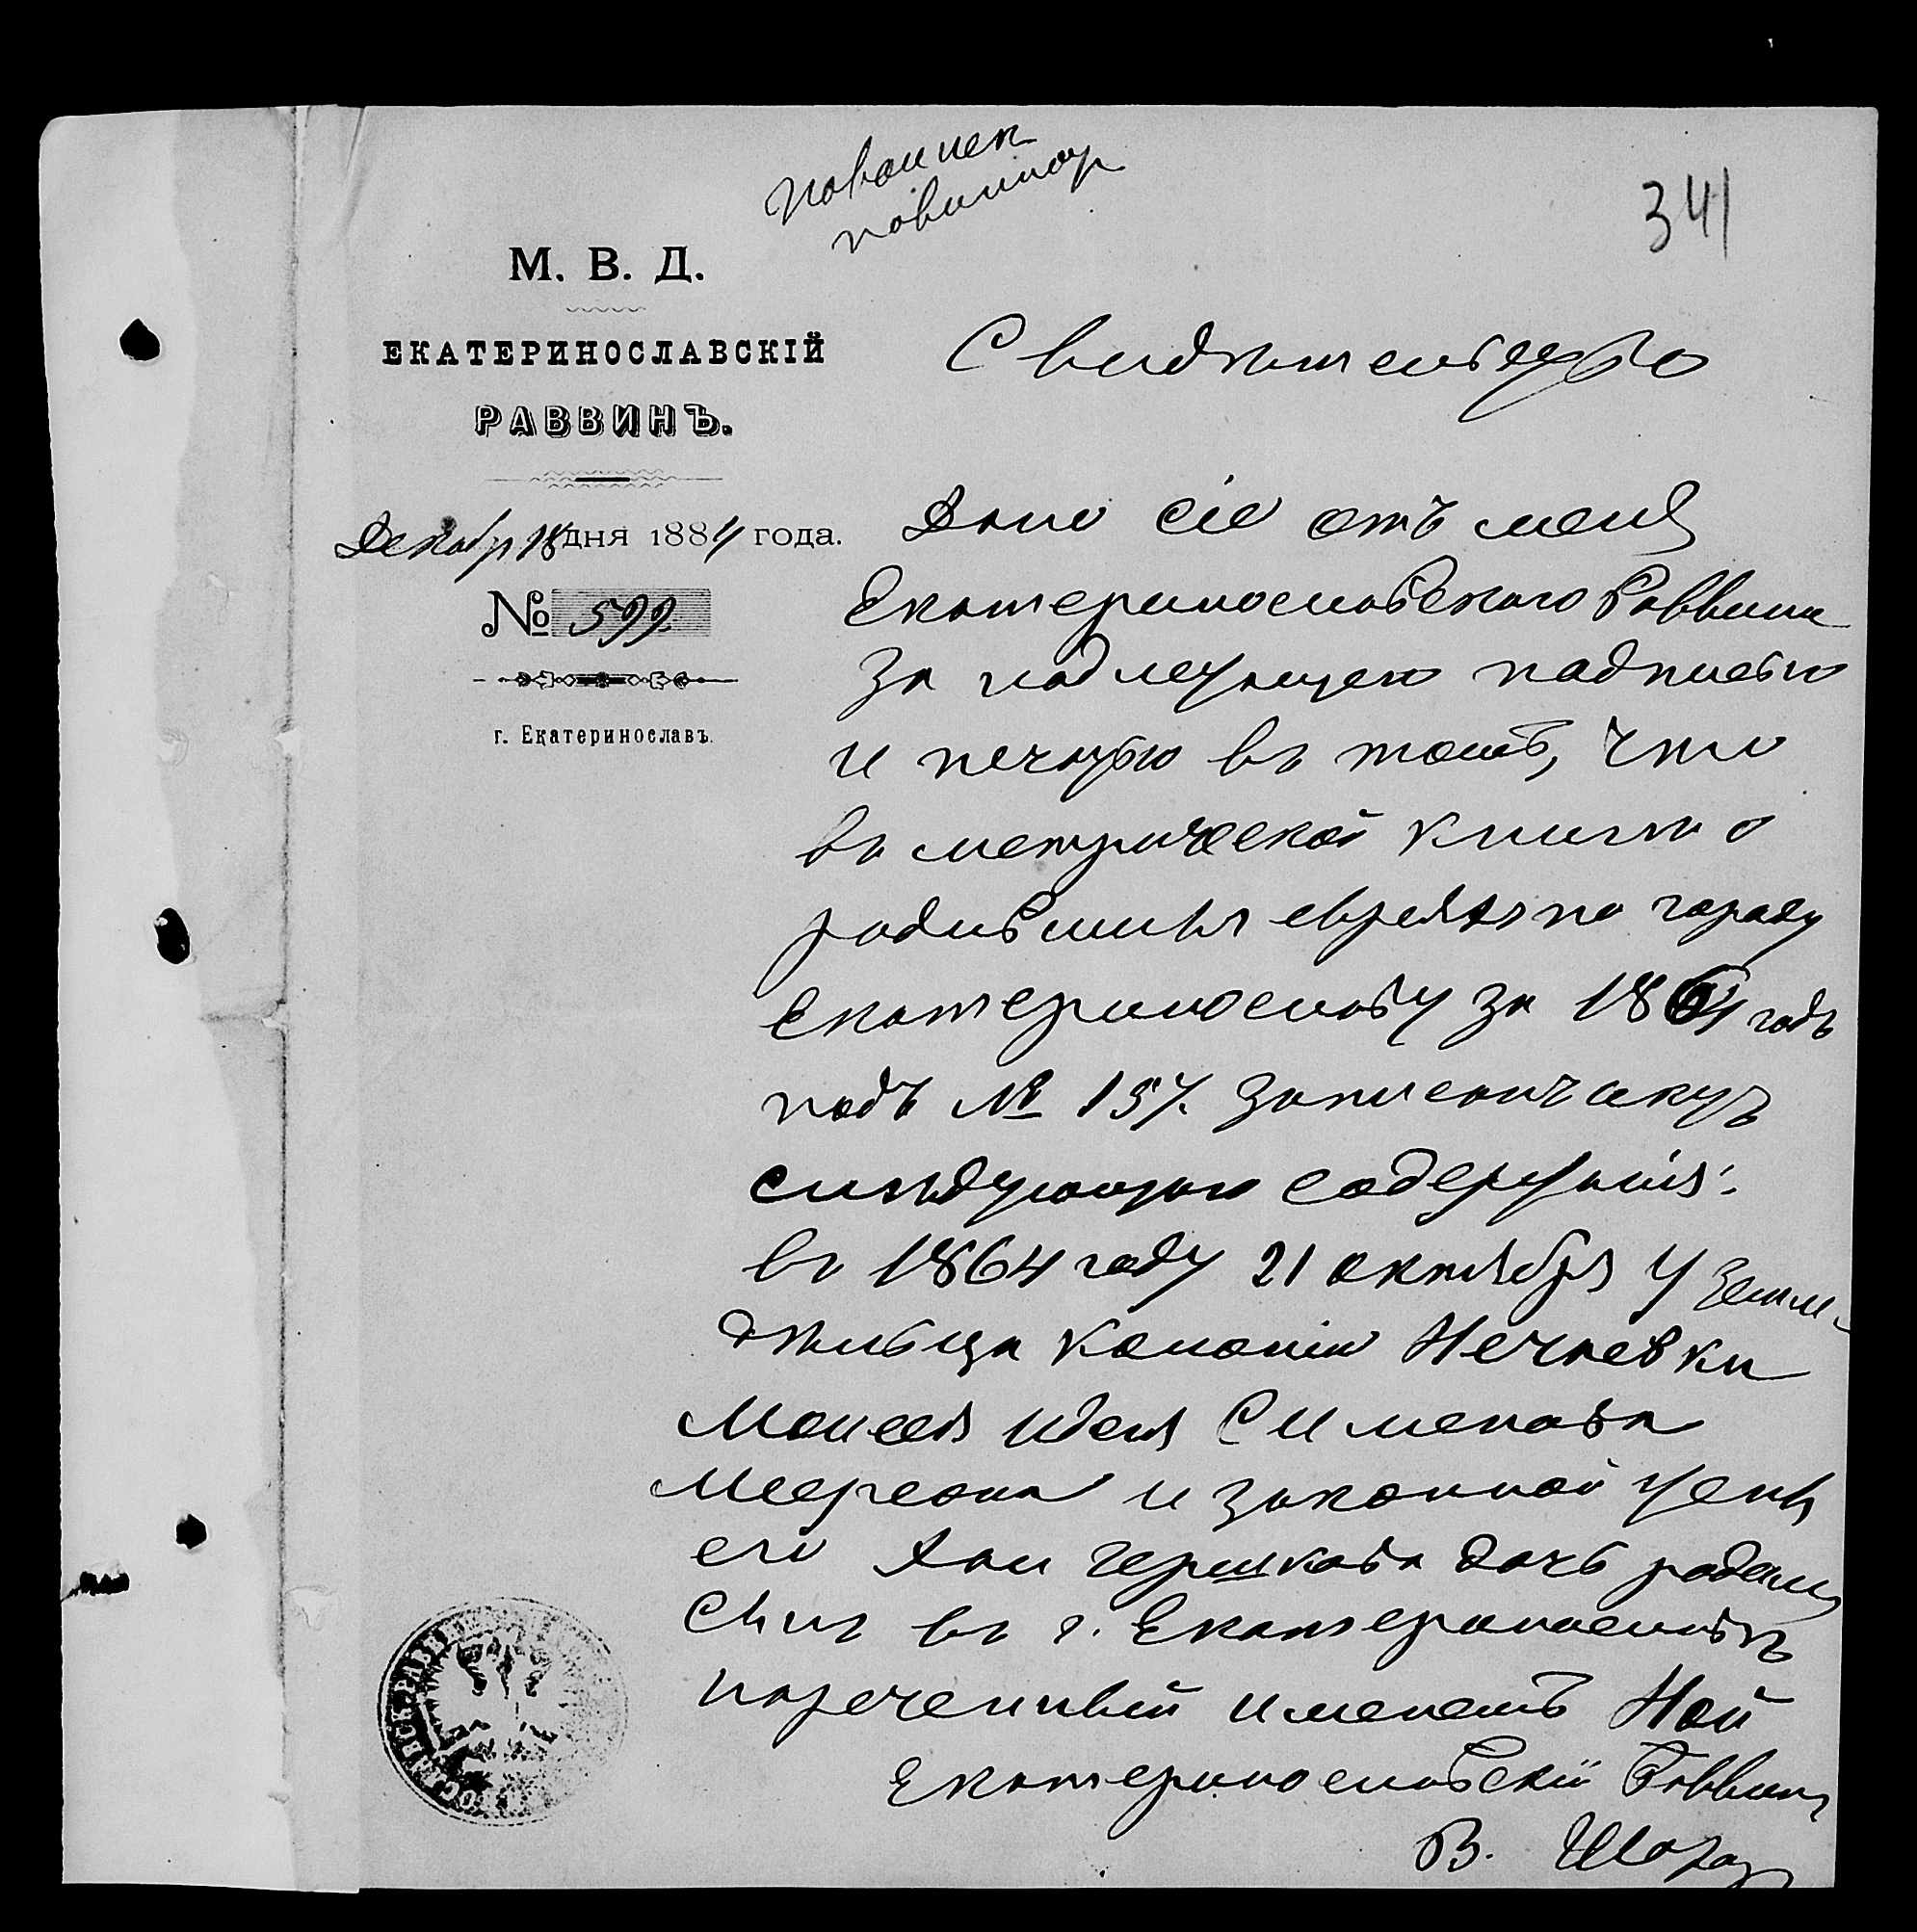 341
М. В. Д.
ЕКАТЕРИНОСЛАВСКІЙ
РАВВИНЪ.
Декабр 18 дня 1884 года.
№ 599.
г. Екатеринославъ.
Свидѣтельство
Дано сіе отъ меня
Екатеринославскаго Раввина
за надлежащею подписью
и печатью въ томъ, что
въ метрической книги о
родившихся евреяхъ по городу
Екатеринославу за 1864 годъ
подъ № 157. записанъ актъ
слѣдующаго содержанія:
въ 1864 году 21 октября у земле-
дѣльца колоніи Нечаевки
Моисея Сименова
Меерсона и законной жены
его Гершкова дочь родился
Сынъ въ г. Екатеринославѣ
нареченный именемъ Ной
Екатеринославскій Раввинъ
В.